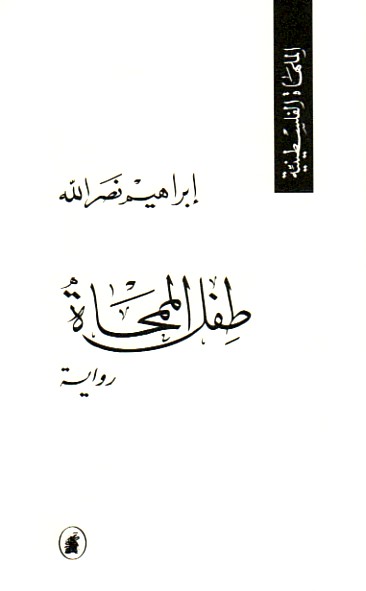 الملهاة الفلسطينية
إبراهيم نصر الله
طفل الممحاة
رواية